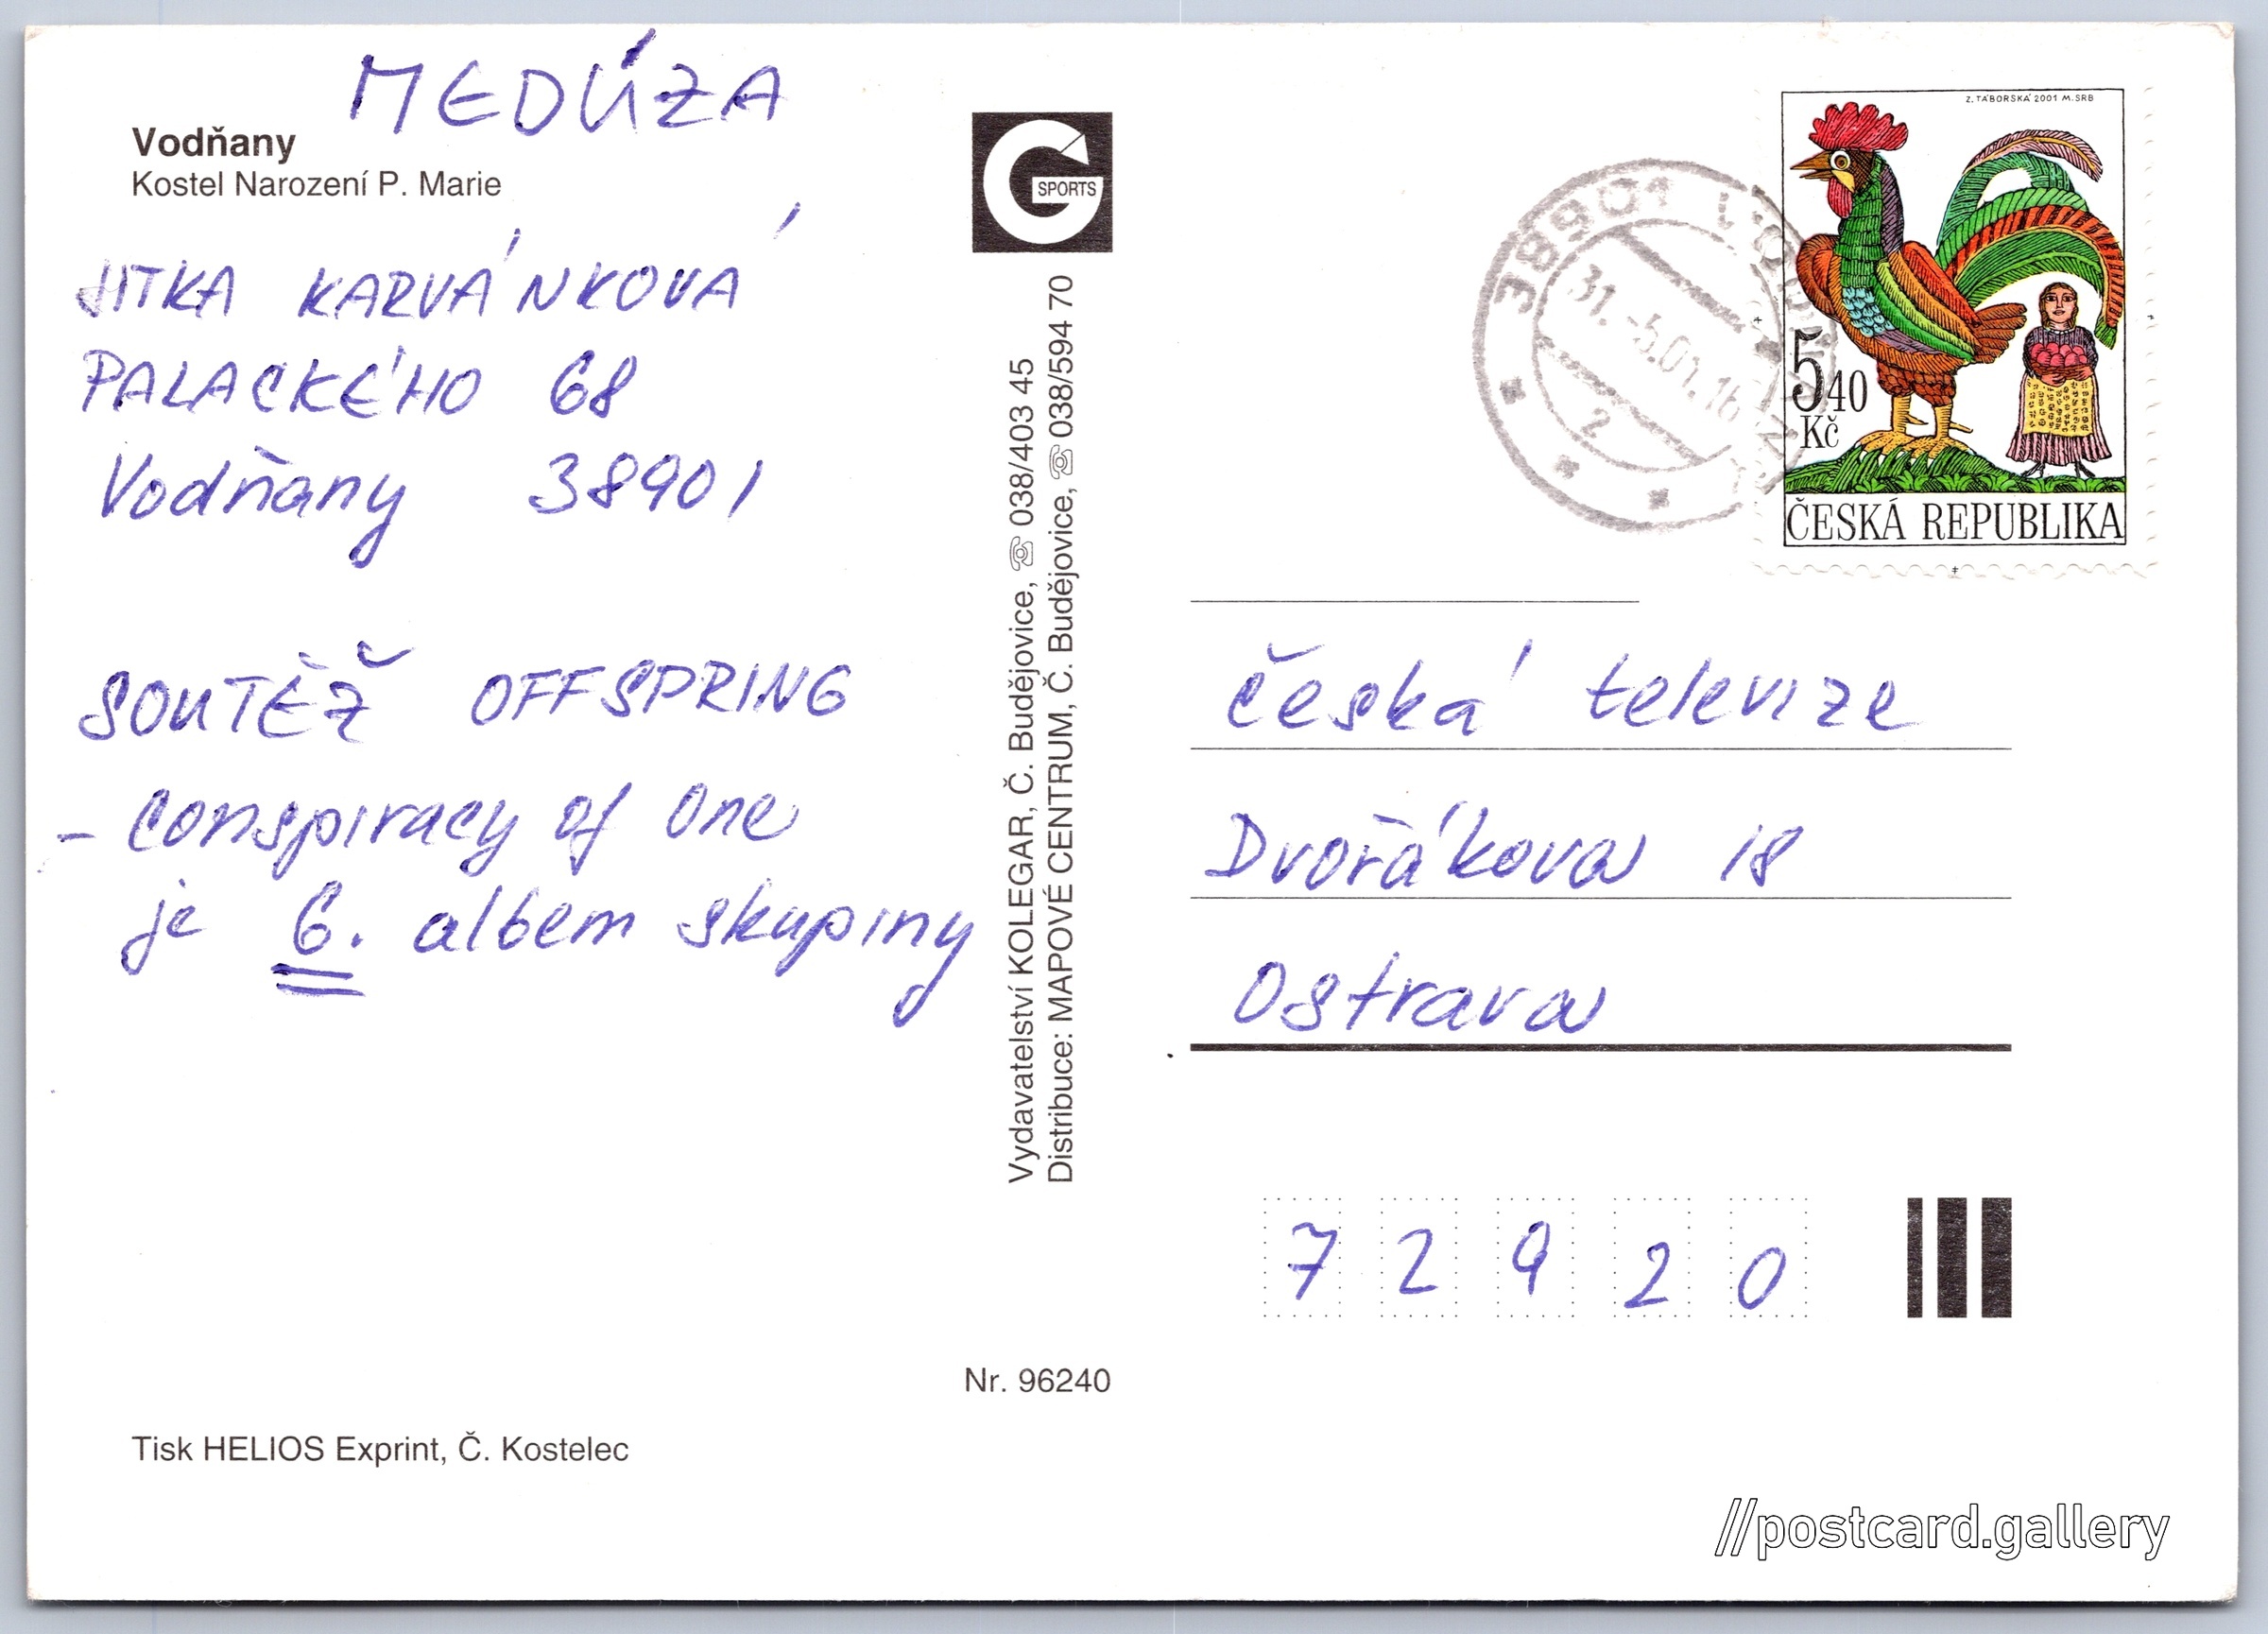 MEDÚZA
Vodňany
Kostel Narození P. Marie
JITKA KARVÁNKOVÁ
PALACKÉHO 68
Vodňany 38901
SOUTĚŽ OFFSPRING
- Conspiracy of One
je 6. albem skupiny
Tisk HELIOS Exprint, Č. Kostelec
G SPORTS
Vydavatelství KOLEGAR, Č. Budějovice, ☏ 038/403 45
Distribuce: MAPOVÉ CENTRUM, Č. Budějovice, ☏ 038/594 70
Nr. 96240
38901
31.-5.01.16
2
Z. TÁBORSKÁ 2001 M. SRB
5,40
Kč
ČESKÁ REPUBLIKA
Česká televize
Dvořákova 18
Ostrava
72920
//postcard.gallery